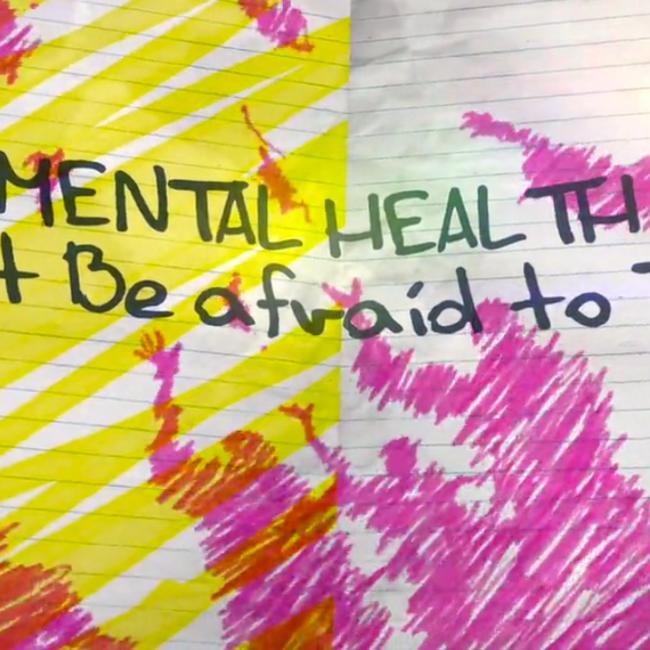 MENTAL HEALTH
t Be afraid to T